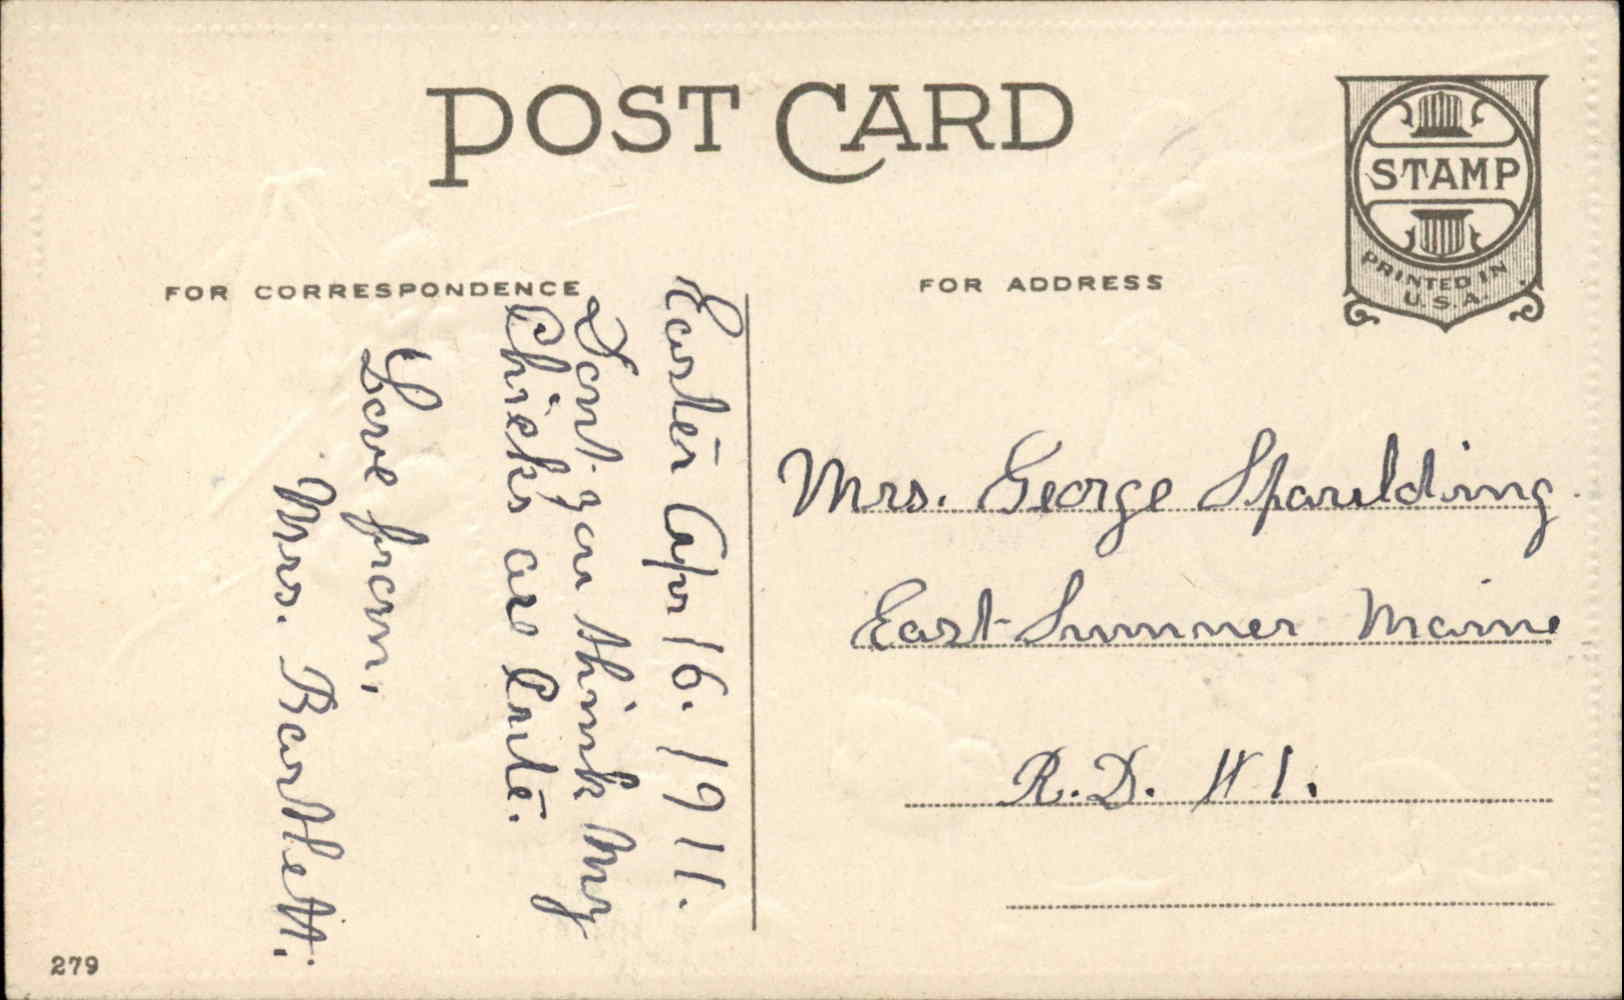 POST CARD
STAMP
PRINTED IN
U.S.A.
FOR CORRESPONDENCE
FOR ADDRESS
Easter Apr 16. 1911.
Dont you think my
Chicks are Cute.
Love from,
Mrs. Bartlett.
Mrs. George Spaulding
East Sumner Maine
R.D. #1.
279